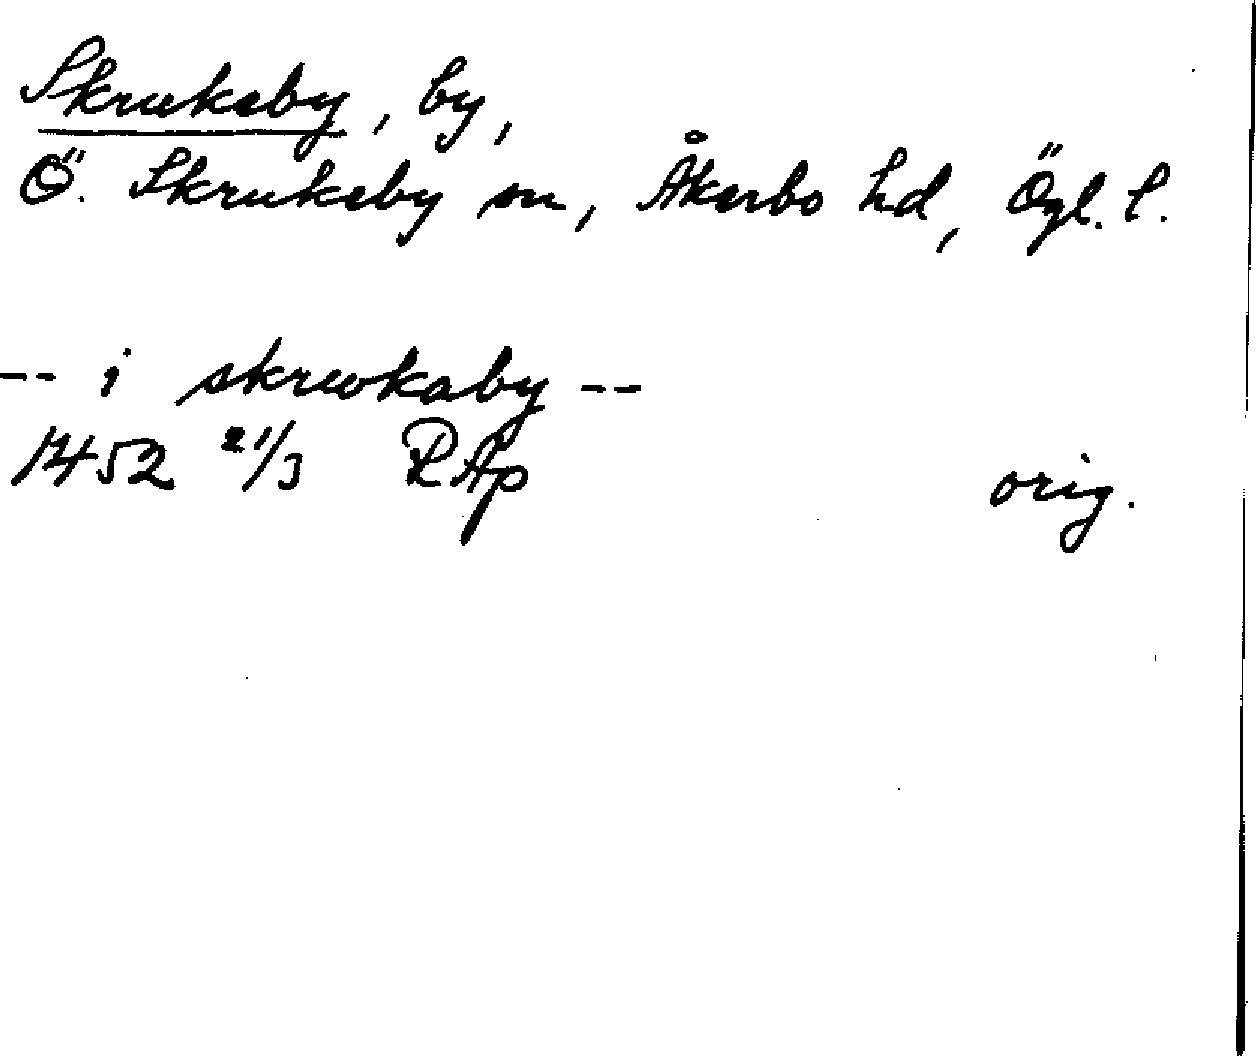 Skrukeby, by,
Ö. Skrukeby sn, Åkerbo hd, Ögl. l.
-- i skrwkaby --
1452 21/3 RAp
orig.